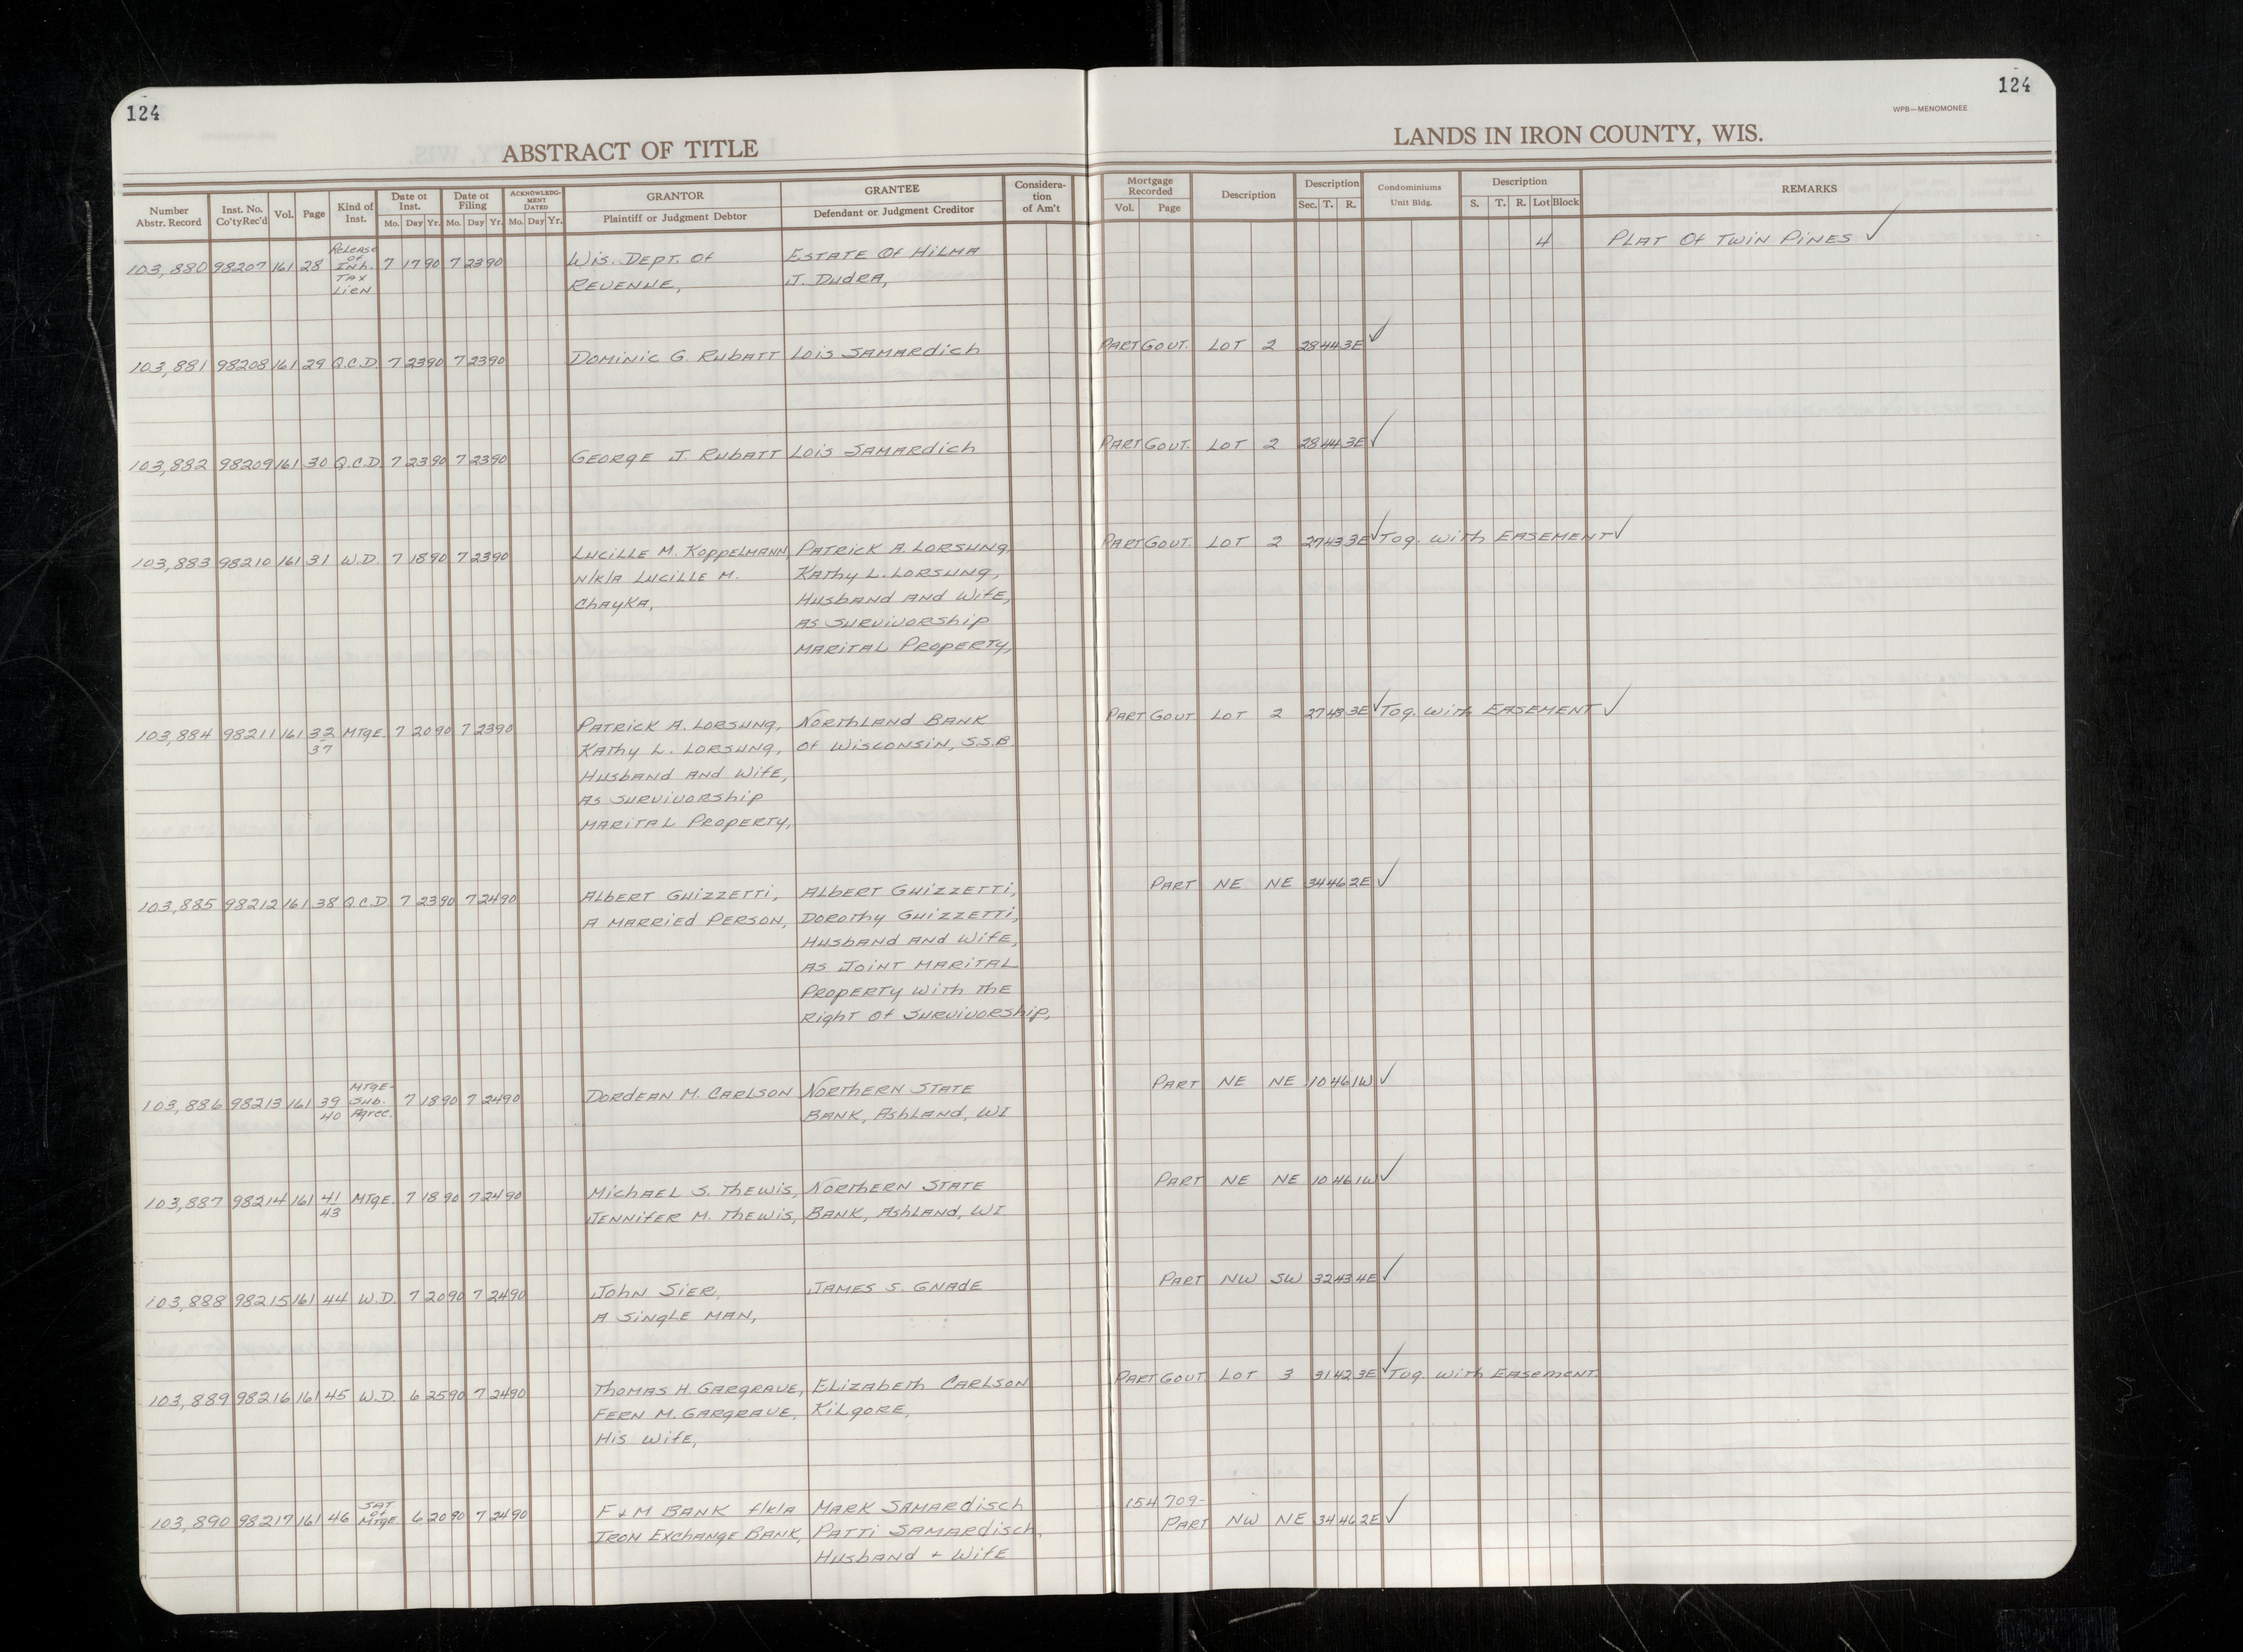 124
124
WPB—MENOMONEE
ABSTRACT OF TITLE
LANDS IN IRON COUNTY, WIS.
Number Abstr. Record Inst. No. Co'ty Rec'd Vol. Page Kind of Inst. Date of Inst. Mo. Day Yr. Date of Filing Mo. Day Yr. ACKNOWLEDGMENT DATED Mo. Day Yr. GRANTOR Plaintiff or Judgment Debtor GRANTEE Defendant or Judgment Creditor Consideration of Am't Mortgage Recorded Vol. Page Description Description Sec. T. R. Condominiums Unit Bldg. Description S. T. R. Lot Block REMARKS
103,880 98207 161 28 Release of Inh. Tax Lien 7 17 90 7 23 90 Wis. Dept. of Estate of Hilma 4 Plat of Twin Pines ✓
Revenue, J. Dudra,
103,881 98208 161 29 Q.C.D. 7 23 90 7 23 90 Dominic G. Rubatt Lois Samardich Part Govt. Lot 2 28 44 3E ✓
103,882 98209 161 30 Q.C.D. 7 23 90 7 23 90 George J. Rubatt Lois Samardich Part Govt. Lot 2 28 44 3E ✓
103,883 98210 161 31 W.D. 7 18 90 7 23 90 Lucille M. Koppelmann Patrick A. Lorsung, Part Govt. Lot 2 27 43 3E ✓ Tog. with Easement ✓
n/k/a Lucille M. Kathy L. Lorsung,
Chayka, Husband and Wife,
as Survivorship
Marital Property,
103,884 98211 161 32 37 Mtge. 7 20 90 7 23 90 Patrick A. Lorsung, Northland Bank Part Govt Lot 2 27 43 3E ✓ Tog. with Easement ✓
Kathy L. Lorsung, of Wisconsin, S.S.B.
Husband and Wife,
as Survivorship
Marital Property,
103,885 98212 161 38 Q.C.D. 7 23 90 7 24 90 Albert Guizzetti, Albert Guizzetti, Part NE NE 34 46 2E ✓
a Married Person, Dorothy Guizzetti,
Husband and Wife,
as Joint Marital
Property with the
Right of Survivorship,
103,886 98213 161 39 40 Mtge- Sub. Agree. 7 18 90 7 24 90 Dordean M. Carlson Northern State Part NE NE 10 46 1W ✓
Bank, Ashland, WI
103,887 98214 161 41 43 Mtge. 7 18 90 7 24 90 Michael S. Thewis, Northern State Part NE NE 10 46 1W ✓
Jennifer M. Thewis, Bank, Ashland, WI
103,888 98215 161 44 W.D. 7 20 90 7 24 90 John Sier, James S. Gnade Part NW SW 32 43 4E ✓
a Single Man,
103,889 98216 161 45 W.D. 6 25 90 7 24 90 Thomas H. Gargrave, Elizabeth Carlson Part Govt. Lot 3 31 42 3E ✓ Tog. with Easement.
Fern M. Gargrave, Kilgore,
His Wife,
103,890 98217 161 46 Sat. of Mtge 6 20 90 7 24 90 F & M Bank f/k/a Mark Samardisch 154 709-
Iron Exchange Bank, Patti Samardisch, Part NW NE 34 46 2E ✓
Husband + Wife